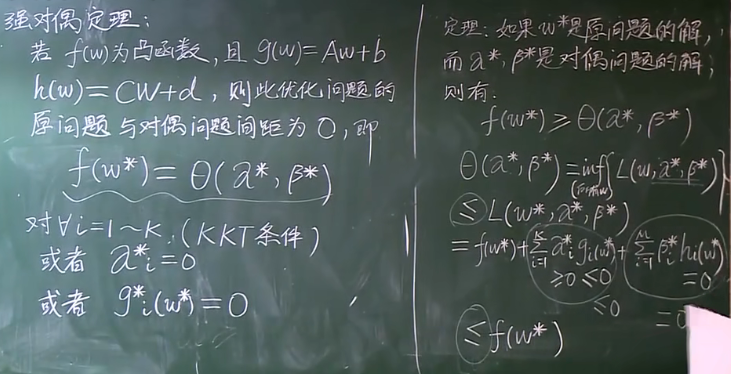 强对偶定理:
若 f(w)为凸函数, 且 g(w)=Aw+b
h(w)=CW+d, 则此优化问题的
原问题与对偶问题间距为0, 即
f(w*)=θ(α*,β*)
对∀i=1~K, (KKT条件)
或者 α*i=0
或者 g*i(w*)=0
定理: 如果w*是原问题的解,
而α*,β*是对偶问题的解,
则有:
f(w*)≥θ(α*,β*)
θ(α*,β*)=inf{L(w,α*,β*)}
(所有w)
≤L(w*,α*,β*)
=f(w*)+∑_{i=1}^{K}α*i gi(w*)+∑_{i=1}^{M}β*i hi(w*)
≥0 ≤0 =0
≤0 =0
≤f(w*)